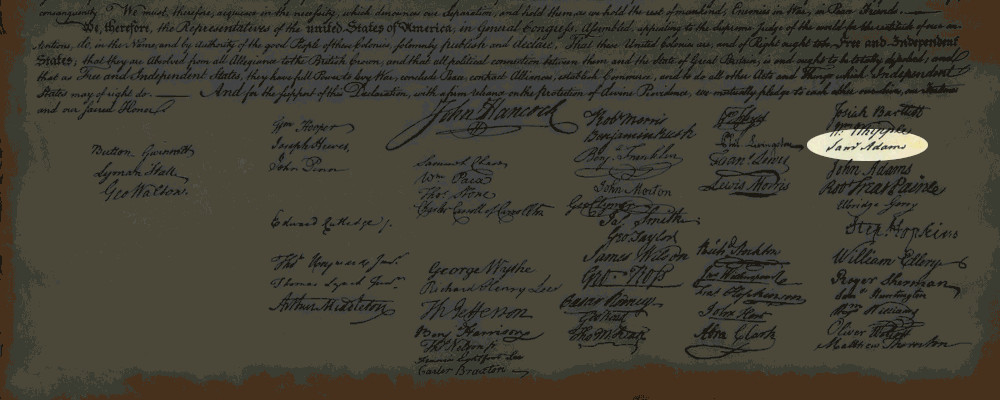 consanguinity. We must, therefore, acquiesce in the necessity, which denounces our Separation, and hold them, as we hold the rest of mankind, Enemies in War, in Peace Friends.
We, therefore, the Representatives of the united States of America, in General Congress, Assembled, appealing to the Supreme Judge of the world for the rectitude of our in-
tentions, do, in the Name, and by authority of the good People of these Colonies, solemnly publish and declare, That these United Colonies are, and of Right ought to be Free and Independent
States; that they are Absolved from all Allegiance to the British Crown, and that all political connection between them and the State of Great Britain, is and ought to be totally dissolved; and
that as Free and Independent States, they have full Power to levy War, conclude Peace, contract Alliances, establish Commerce, and to do all other Acts and Things which Independent
States may of right do. And for the support of this Declaration, with a firm reliance on the protection of divine Providence, we mutually pledge to each other our Lives, our Fortunes
and our sacred Honor.
Button Gwinnett
Lyman Hall
Geo Walton.
Wm Hooper
Joseph Hewes,
John Penn
Edward Rutledge /.
Thos Heyward Junr.
Thomas Lynch Junr.
Arthur Middleton
John Hancock
Samuel Chase
Wm Paca
Thos Stone
Charles Carroll of Carrollton
George Wythe
Richard Henry Lee
Th Jefferson
Benj Harrison
Thos Nelson jr.
Francis Lightfoot Lee
Carter Braxton
Robt Morris
Benjamin Rush
Benj. Franklin
John Morton
Geo Clymer
Jas. Smith
Geo. Taylor
James Wilson
Geo. Ross
Caesar Rodney
Geo Read
Tho M:Kean
Phil. Livingston
Frans. Lewis
Lewis Morris
Richd. Stockton
Jno Witherspoon
Fras. Hopkinson
John Hart
Abra Clark
Josiah Bartlett
Wm. Whipple
Saml Adams
John Adams
Robt Treat Paine
Elbridge Gerry
Step. Hopkins
William Ellery
Roger Sherman
Saml Huntington
Wm Williams
Oliver Wolcott
Matthew Thornton